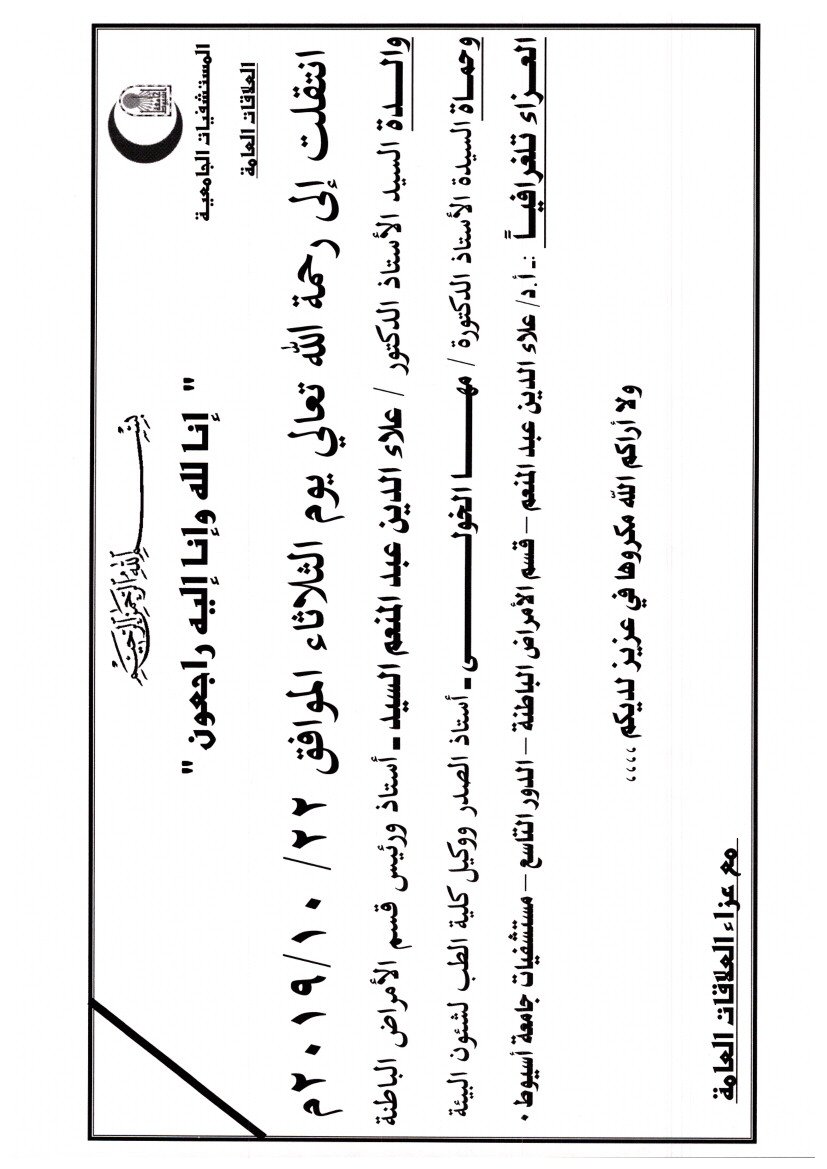 المستشفيات الجامعية
العلاقات العامة
بسم الله الرحمن الرحيم
" إنا لله وإنا إليه راجعون "
انتقلت إلى رحمة الله تعالي يوم الثلاثاء الموافق ٢٢ / ١٠ / ٢٠١٩م
والـــدة السيد الأستاذ الدكتور / علاء الدين عبد المنعم السيد ـ أستاذ ورئيس قسم الأمراض الباطنة
وحمـاة السيدة الأستاذ الدكتورة / مهـــا الخولـــــى ـ أستاذ الصدر ووكيل كلية الطب لشئون البيئة
العــزاء تلغرافيــاً :ـ أ.د/ علاء الدين عبد المنعم – قسم الأمراض الباطنة – الدور التاسع – مستشفيات جامعة أسيوط .
ولا أراكم الله مكروها في عزيز لديكم ،،،،
مع عزاء العلاقات العامة